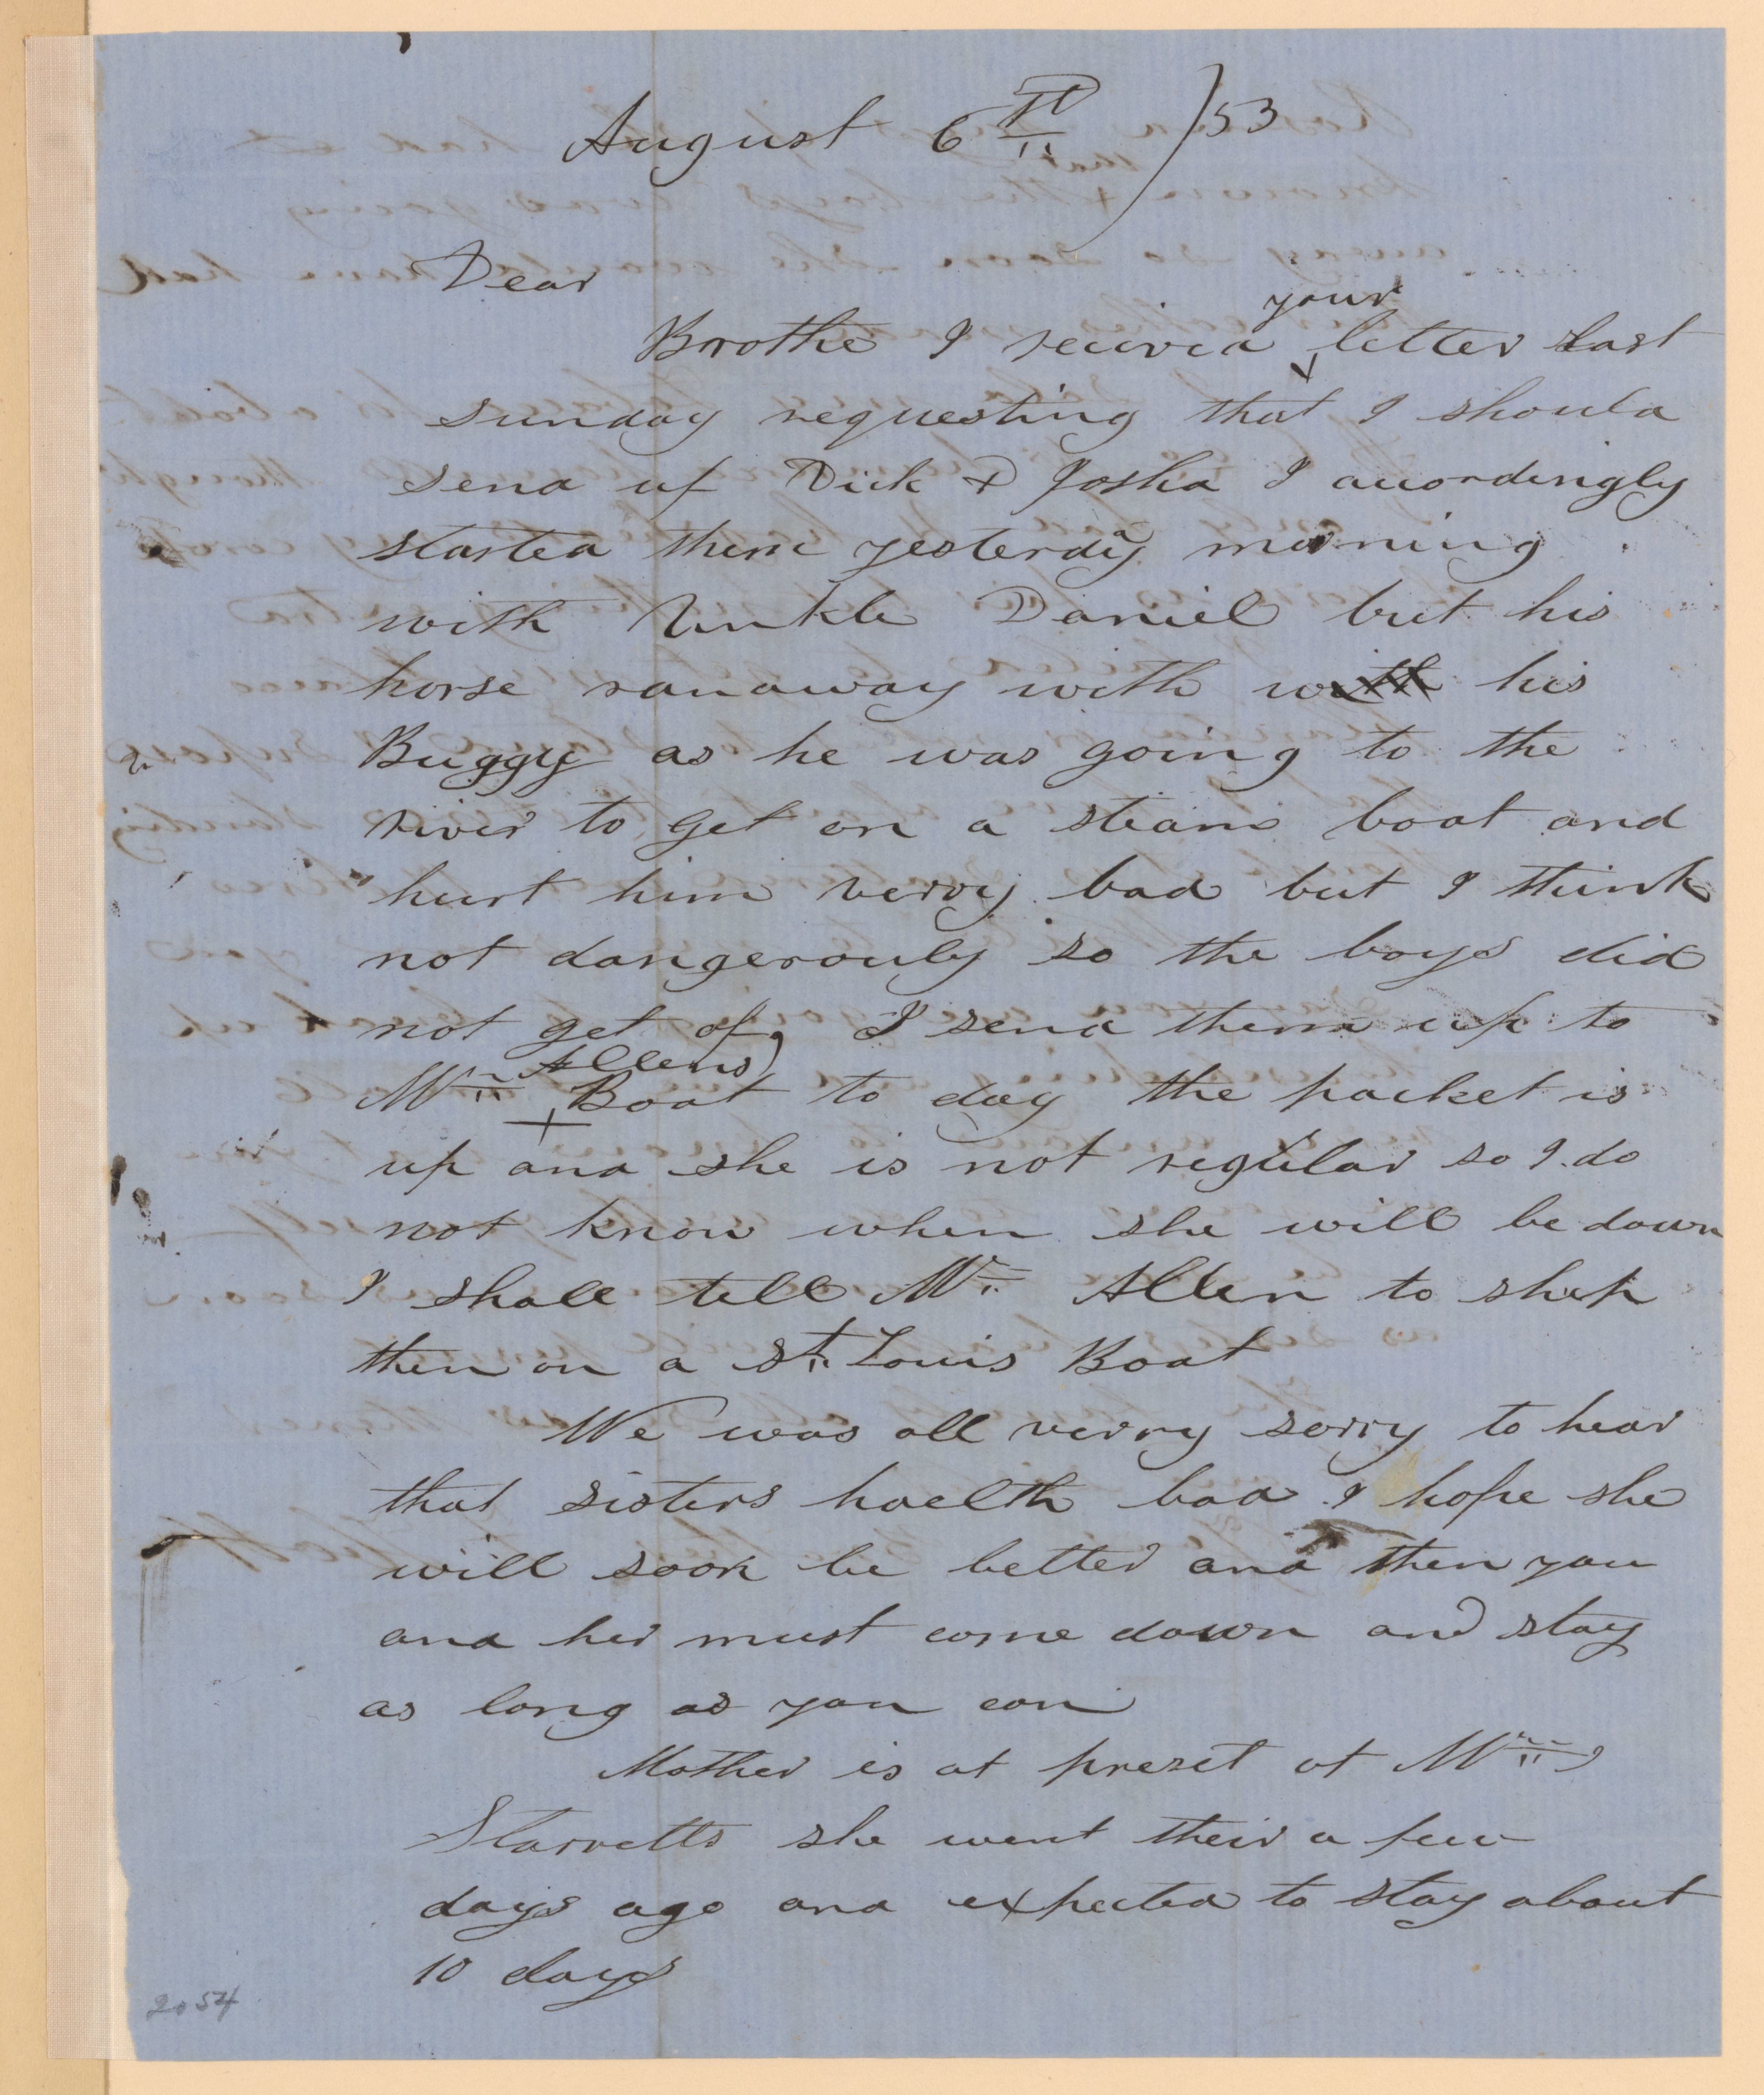 August 6th /53
Dear
Brothe I recivia your letter last
sunday requesting that I should
send up Dick & Josha I acordingly
started them yesterdy morning
with Unkle Daniel but his
horse ranaway with with his
Buggy as he was going to the
river to get on a steam boat and
hurt him verry bad but I think
not dangerouly so the boys did
not get of, I send them up to
Mr Allens Boat to day the packet is
up and she is not regular so I do
not know when she will be down
I shall tell Mr Allen to ship
then on a St. Louis Boat
We was all verry sorry to hear
that sisters haelth bad I hope she
will soon be better and then you
and her must come down and stay
as long as you can
Mother is at preset at Mrs
Starretts she went their a few
days ago and expected to stay about
10 days
2054